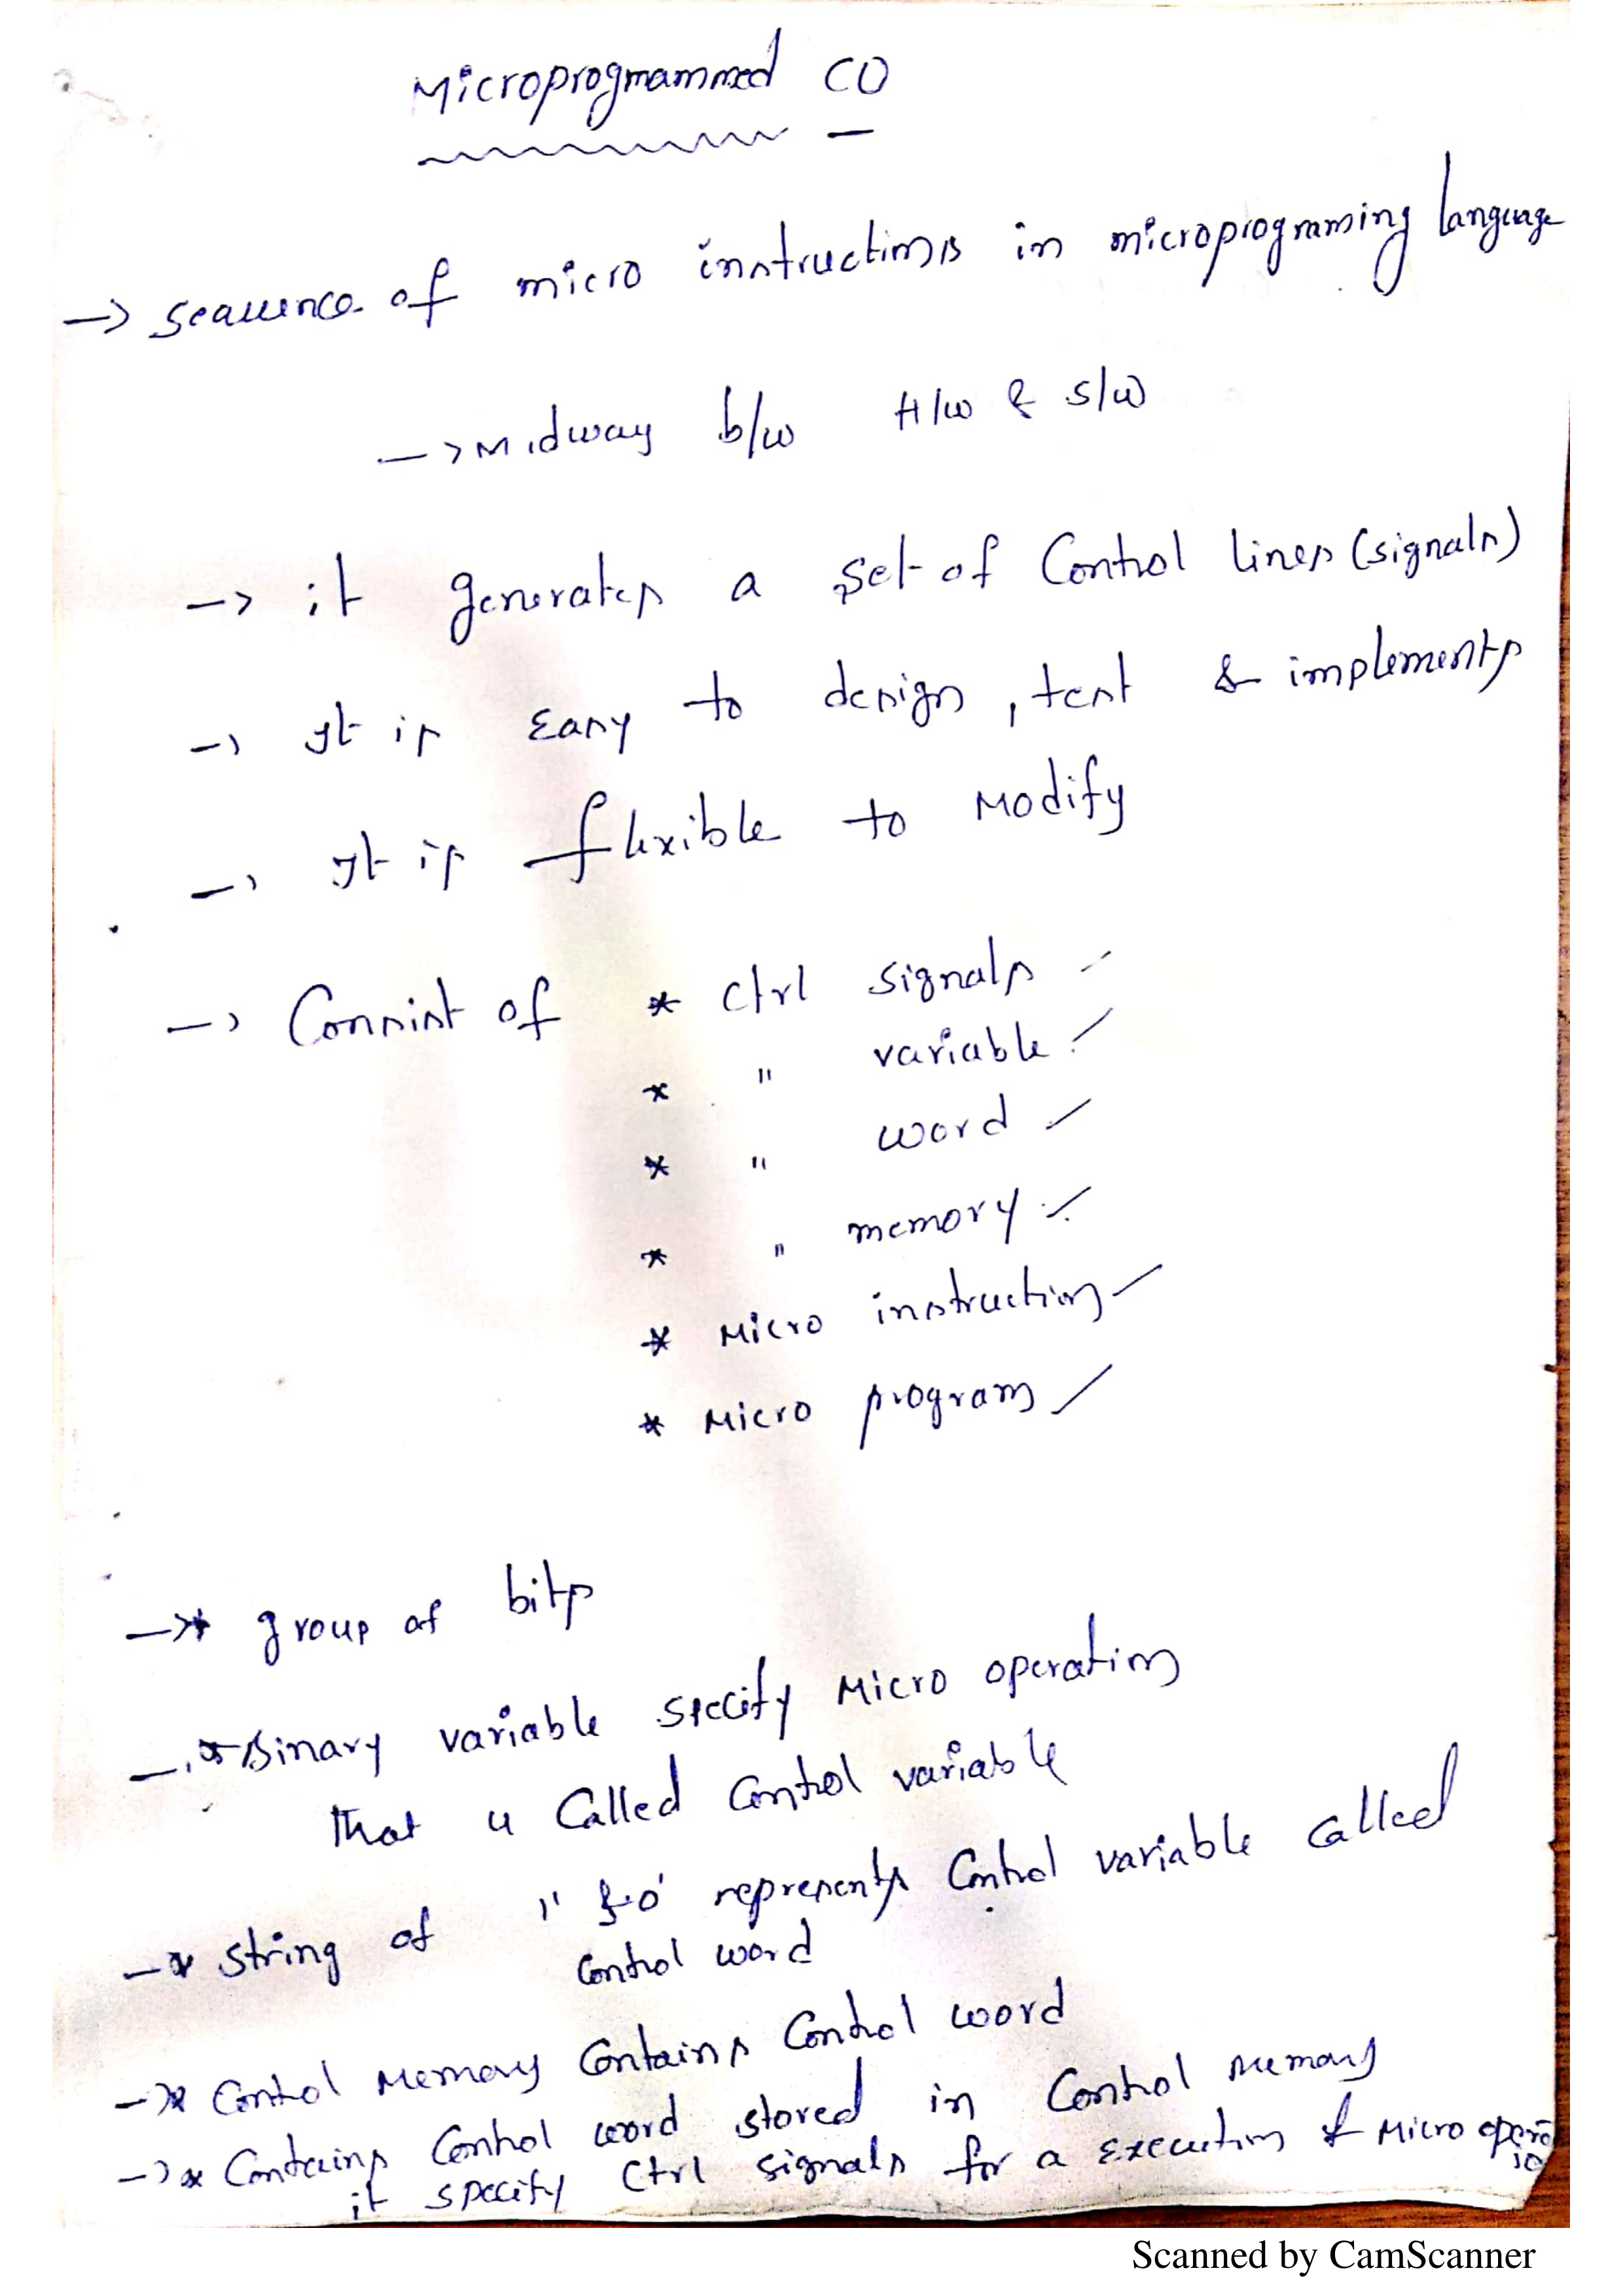 Microprogrammed CO
-> Sequence of micro instructions in microprogramming language
-> Midway b/w H/w & S/w
-> it generates a set of Control lines (signals)
-> It is Easy to design, test & implements
-> It is flexible to Modify
-> Consist of * Ctrl signals
* " variable
* " word
* " memory
* Micro instruction
* Micro program
-> * group of bits
-> * Binary variable specify Micro operation
that is Called Control variable
-> * string of '1' & '0' represents Control variable called
Control word
-> * Control Memory Contains Control word
-> * Contains Control word stored in Control Memory
it specify Ctrl signals for a Execution of Micro operatio
Scanned by CamScanner